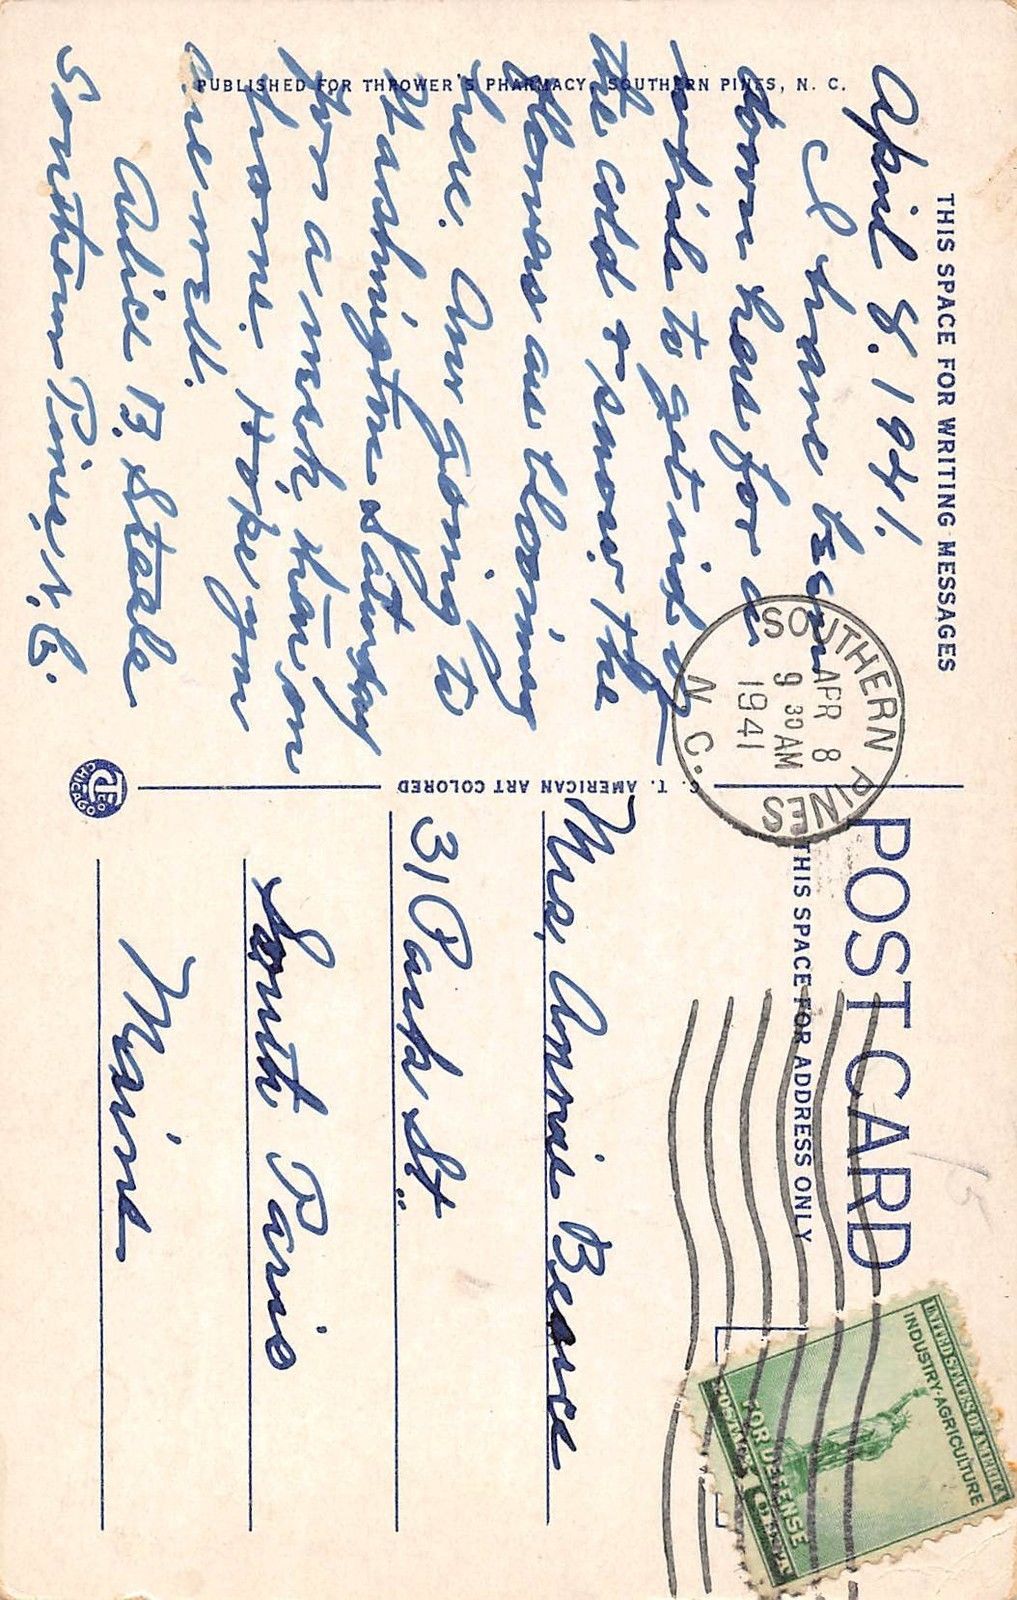 THIS SPACE FOR WRITING MESSAGES
April 8. 1941.
I have been
down here for a
while to get rid of
the cold & snow. The
flowers are blooming
here. Am going to
Washington Saturday
for a week, then on
home. Hope you
are well.
Alice B. Steele
Southern Pines, N.C.
PUBLISHED FOR THROWER'S PHARMACY, SOUTHERN PINES, N. C.
C. T. AMERICAN ART COLORED
CTCO
CHICAGO
SOUTHERN PINES
APR 8
9 30 AM
1941
N. C.
POST CARD
THIS SPACE FOR ADDRESS ONLY
UNITED STATES OF AMERICA
INDUSTRY·AGRICULTURE
FOR DEFENSE
POSTAGE 1 CENT
Mrs. Annie Bearce
31 Park St.
South Paris
Maine